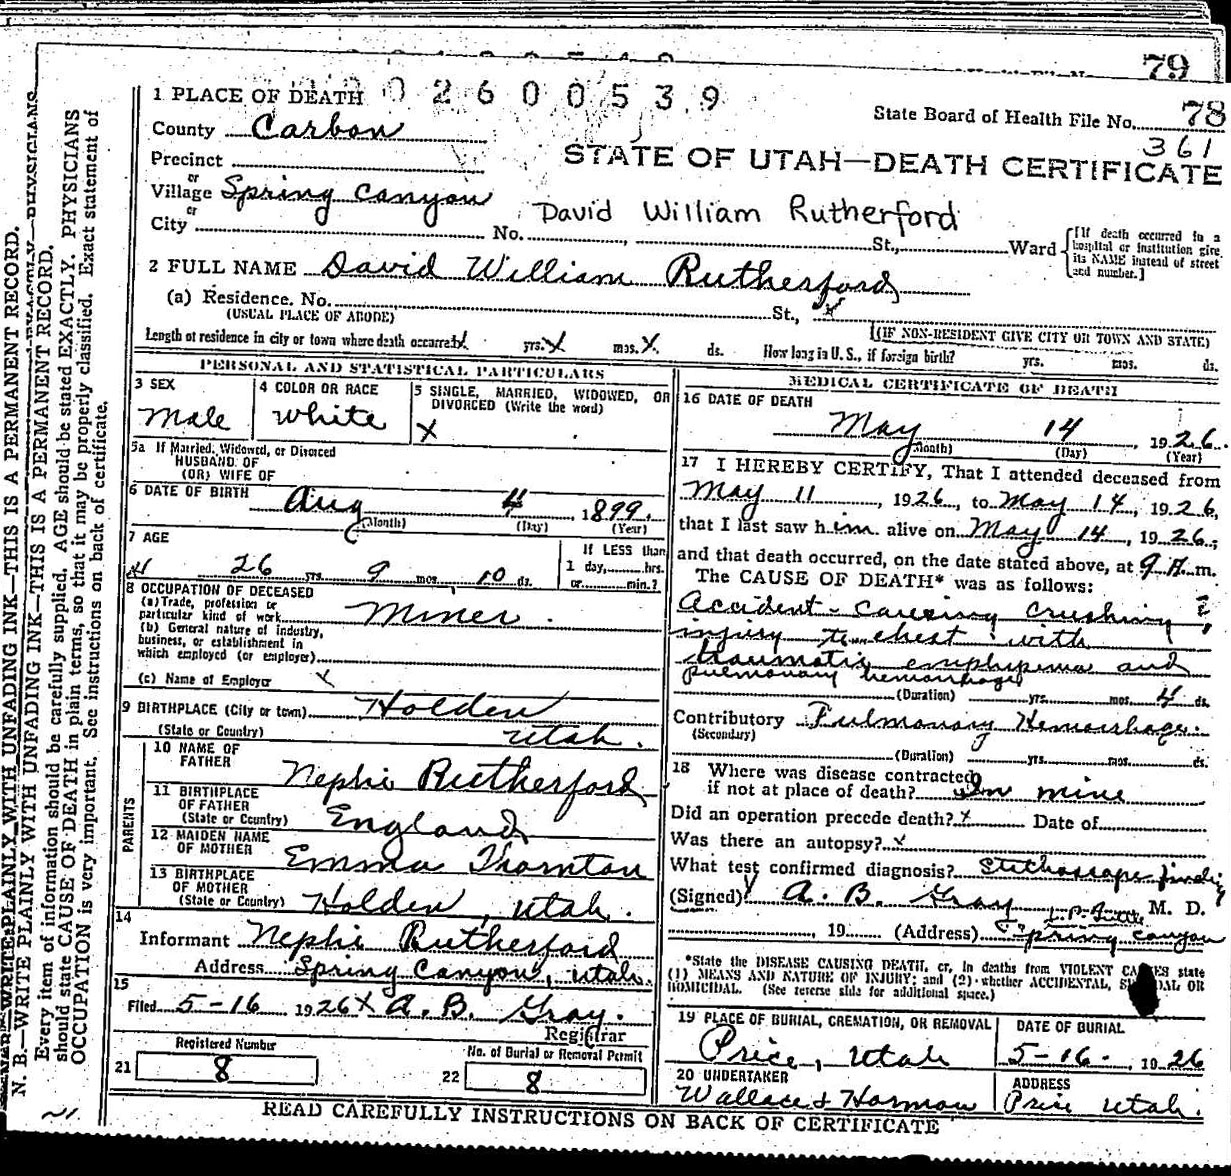 79
1 PLACE OF DEATH 02600539
State Board of Health File No. 78
361
County Carbon
STATE OF UTAH—DEATH CERTIFICATE
Precinct
or
Village Spring Canyon
or
David William Rutherford
City No. St., Ward
[If death occurred in a hospital or institution give its NAME instead of street and number.]
2 FULL NAME David William Rutherford
(a) Residence. No. St., x
(USUAL PLACE OF ABODE) (IF NON-RESIDENT GIVE CITY OR TOWN AND STATE)
Length of residence in city or town where death occurred x yrs. x mos. x ds. How long in U. S., if foreign birth? yrs. mos. ds.
PERSONAL AND STATISTICAL PARTICULARS
3 SEX Male
4 COLOR OR RACE White
5 SINGLE, MARRIED, WIDOWED, OR DIVORCED (Write the word)
X
5a If Married, Widowed, or Divorced
HUSBAND OF
(OR) WIFE OF
6 DATE OF BIRTH Aug 4 1899.
(Month) (Day) (Year)
7 AGE
26 yrs. 9 mos. 10 ds.
If LESS than
1 day, hrs.
or min.?
8 OCCUPATION OF DECEASED
(a) Trade, profession or
particular kind of work Miner.
(b) General nature of industry,
business, or establishment in
which employed (or employer)
(c) Name of Employer x
9 BIRTHPLACE (City or town) Holden
(State or Country) Utah.
PARENTS
10 NAME OF
FATHER Nephi Rutherford
11 BIRTHPLACE
OF FATHER
(State or Country) England
12 MAIDEN NAME
OF MOTHER Emma Thornton
13 BIRTHPLACE
OF MOTHER
(State or Country) Holden, Utah.
14
Informant Nephi Rutherford
Address Spring Canyon, Utah.
15
Filed 5-16 1926 x A. B. Gray.
Registrar
Registered Number
21 8
No. of Burial or Removal Permit
22 8
MEDICAL CERTIFICATE OF DEATH
16 DATE OF DEATH
May 14, 1926.
(Month) (Day) (Year)
17 I HEREBY CERTIFY, That I attended deceased from
May 11, 1926, to May 14, 1926,
that I last saw him alive on May 14, 1926;
and that death occurred, on the date stated above, at 9 A.m.
The CAUSE OF DEATH* was as follows:
Accident - Causing Crushing
injury to chest with
traumatic emphysema and
pulmonary hemorrhage
(Duration) yrs. mos. 4 ds.
Contributory Pulmonary Hemorrhage.
(Secondary)
(Duration) yrs. mos. ds.
18 Where was disease contracted
if not at place of death? In mine
Did an operation precede death? x Date of
Was there an autopsy? x
What test confirmed diagnosis? Stethoscope
(Signed) A. B. Gray M. D.
, 19 (Address) Spring Canyon
*State the DISEASE CAUSING DEATH, or, in deaths from VIOLENT CAUSES state
(1) MEANS AND NATURE OF INJURY; and (2) whether ACCIDENTAL, SUICIDAL OR
HOMICIDAL. (See reverse side for additional space.)
19 PLACE OF BURIAL, CREMATION, OR REMOVAL
Price, Utah
DATE OF BURIAL
5-16- 1926
20 UNDERTAKER
Wallace & Harmon
ADDRESS
Price Utah.
READ CAREFULLY INSTRUCTIONS ON BACK OF CERTIFICATE
N. B.—WRITE PLAINLY WITH UNFADING INK—THIS IS A PERMANENT RECORD.
Every item of information should be carefully supplied. AGE should be stated EXACTLY. PHYSICIANS
should state CAUSE OF DEATH in plain terms, so that it may be properly classified. Exact statement of
OCCUPATION is very important. See instructions on back of certificate.